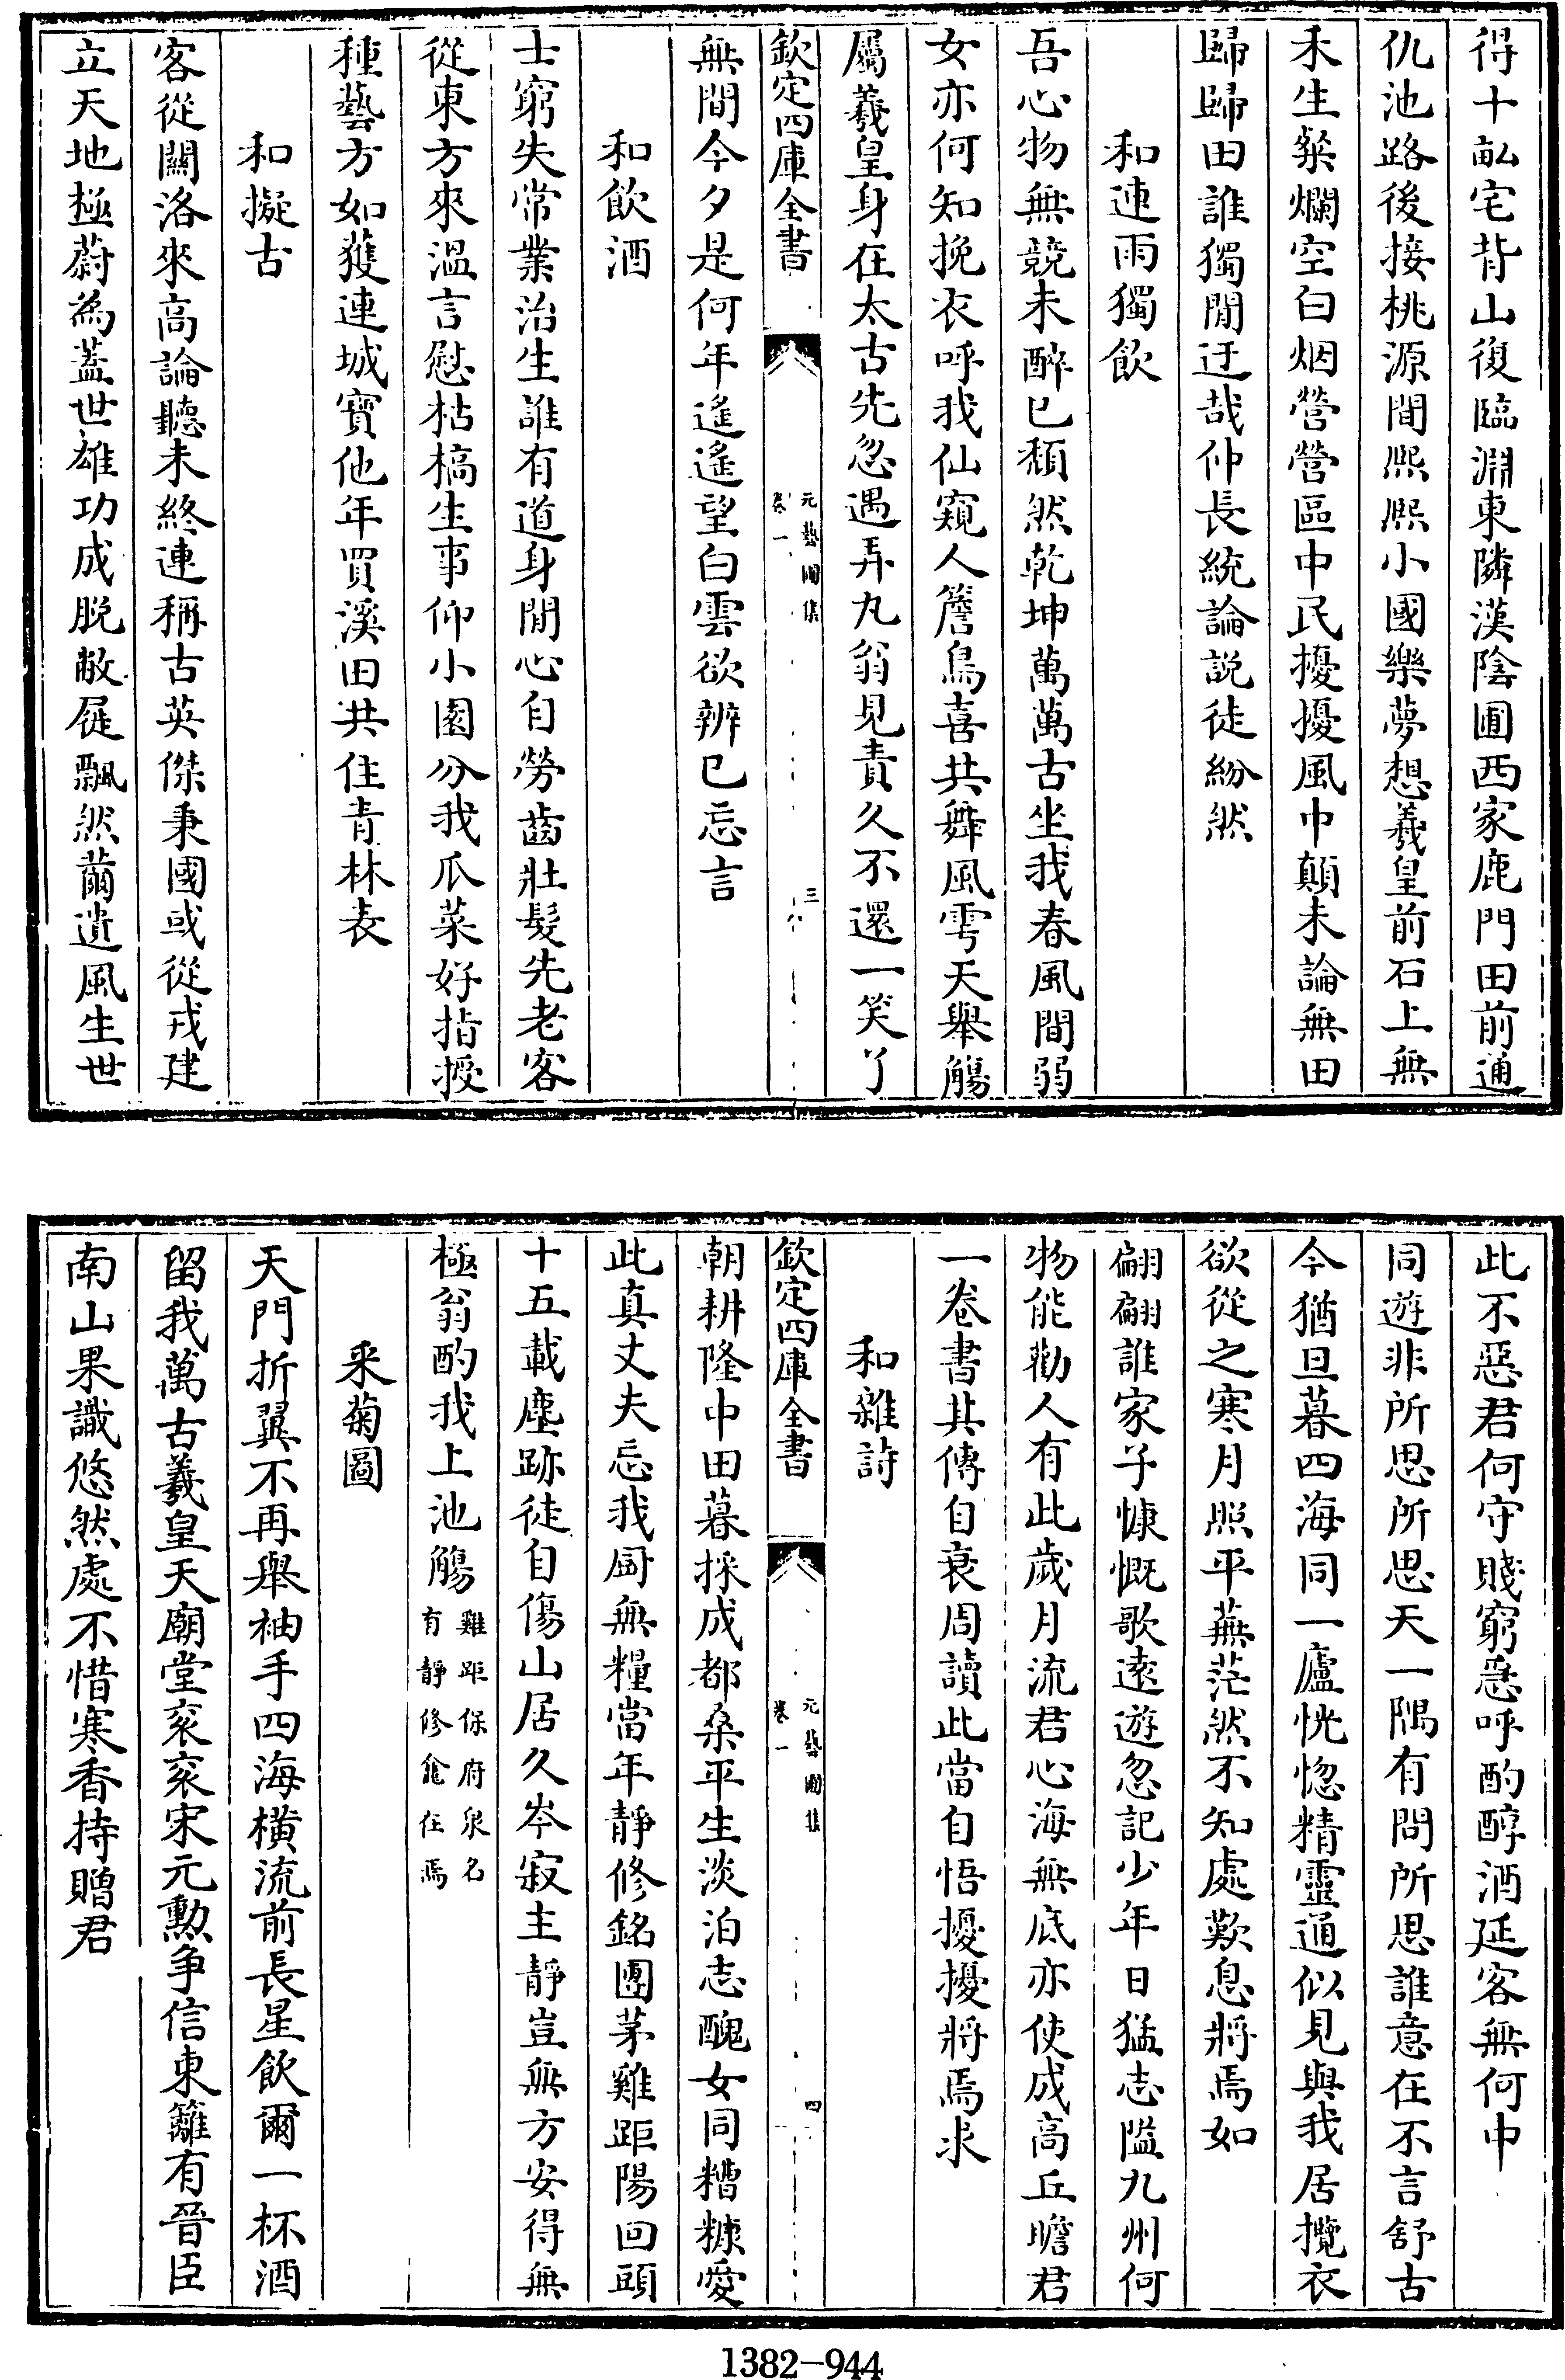 得十畝宅背山復臨淵東隣漢陰圃西家鹿門田前通
仇池路後接桃源間熙熙小國樂夢想羲皇前石上無
禾生粲爛空白烟營營區中民擾擾風中顛未論無田
歸歸田誰獨閒迂哉仲長統論說徒紛然
和連雨獨飲
吾心物無競未醉已頹然乾坤萬萬古坐我春風間弱
女亦何知挽衣呼我仙窺人簷鳥喜共舞風雩天舉觴
屬羲皇身在太古先忽遇弄丸翁見責久不還一笑了
欽定四庫全書
元藝圃集
卷一
三
無間今夕是何年遙遙望白雲欲辨已忘言
和飲酒
士窮失常業治生誰有道身閒心自勞齒壯髮先老客
從東方來溫言慰枯槁生事仰小園分我瓜菜好指授
種藝方如獲連城寶他年買溪田共住青林表
和擬古
客從關洛來高論聽未終連稱古英傑秉國或從戎建
立天地極蔚為蓋世雄功成脫敝屣飄然蕑遺風生世
此不惡君何守賤窮急呼酌醇酒延客無何中
同遊非所思所思天一隅有問所思誰意在不言舒古
今猶旦暮四海同一廬恍惚精靈通似見與我居攬衣
欲從之寒月照平蕪茫然不知處歎息將焉如
翩翩誰家子慷慨歌遠遊忽記少年日猛志隘九州何
物能勸人有此歲月流君心海無底亦使成高丘瞻君
一卷書其傳自衰周讀此當自悟擾擾將焉求
和雜詩
欽定四庫全書
元藝圃集
卷一
四
朝耕隆中田暮採成都桑平生淡泊志醜女同糟糠愛
此真丈夫忘我厨無糧當年靜修銘團茅雞距陽回頭
十五載塵跡徒自傷山居久岑寂主靜豈無方安得無
極翁酌我上池觴
雞距保府泉名
有靜修龕在焉
采菊圖
天門折翼不再舉袖手四海橫流前長星飲爾一杯酒
留我萬古羲皇天廟堂衮衮宋元勳爭信東籬有晉臣
南山果識悠然處不惜寒香持贈君
1382-944